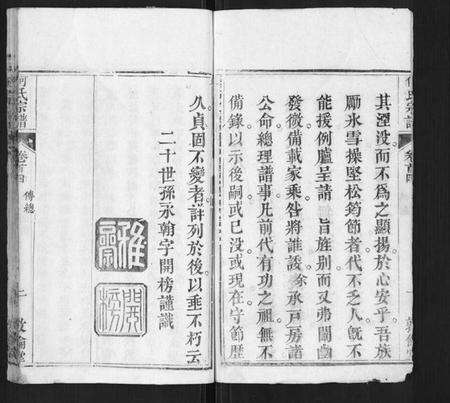 何氏宗譜
卷首四
其湮没而不為之顯揚於心安乎吾族
勵氷雪操堅松筠節者代不乏人旣不
能援例臚呈請 旨旌别而又弗闡幽
發微備載家乘咎將誰諉徐承戸房諸
公命總理譜事凡前代有功之祖無不
備錄以示後嗣或已没或現在守節歷
久貞固不變者詳列於後以垂不朽云
二十世孫永翰字開榜謹識
開榜
何氏宗譜
卷首四
傳總
一
敦倫堂